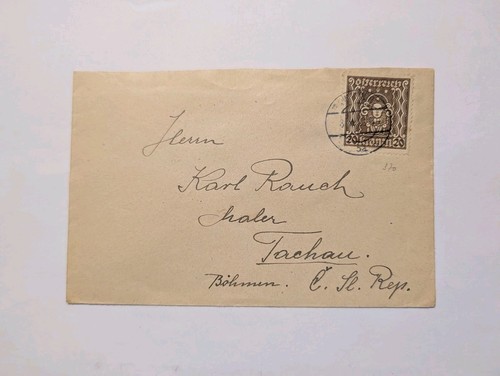 Österreich
20 KRONEN 20
Herrn
Karl Rauch
Maler
Tachau.
Böhmen. Č. Sl. Rep.